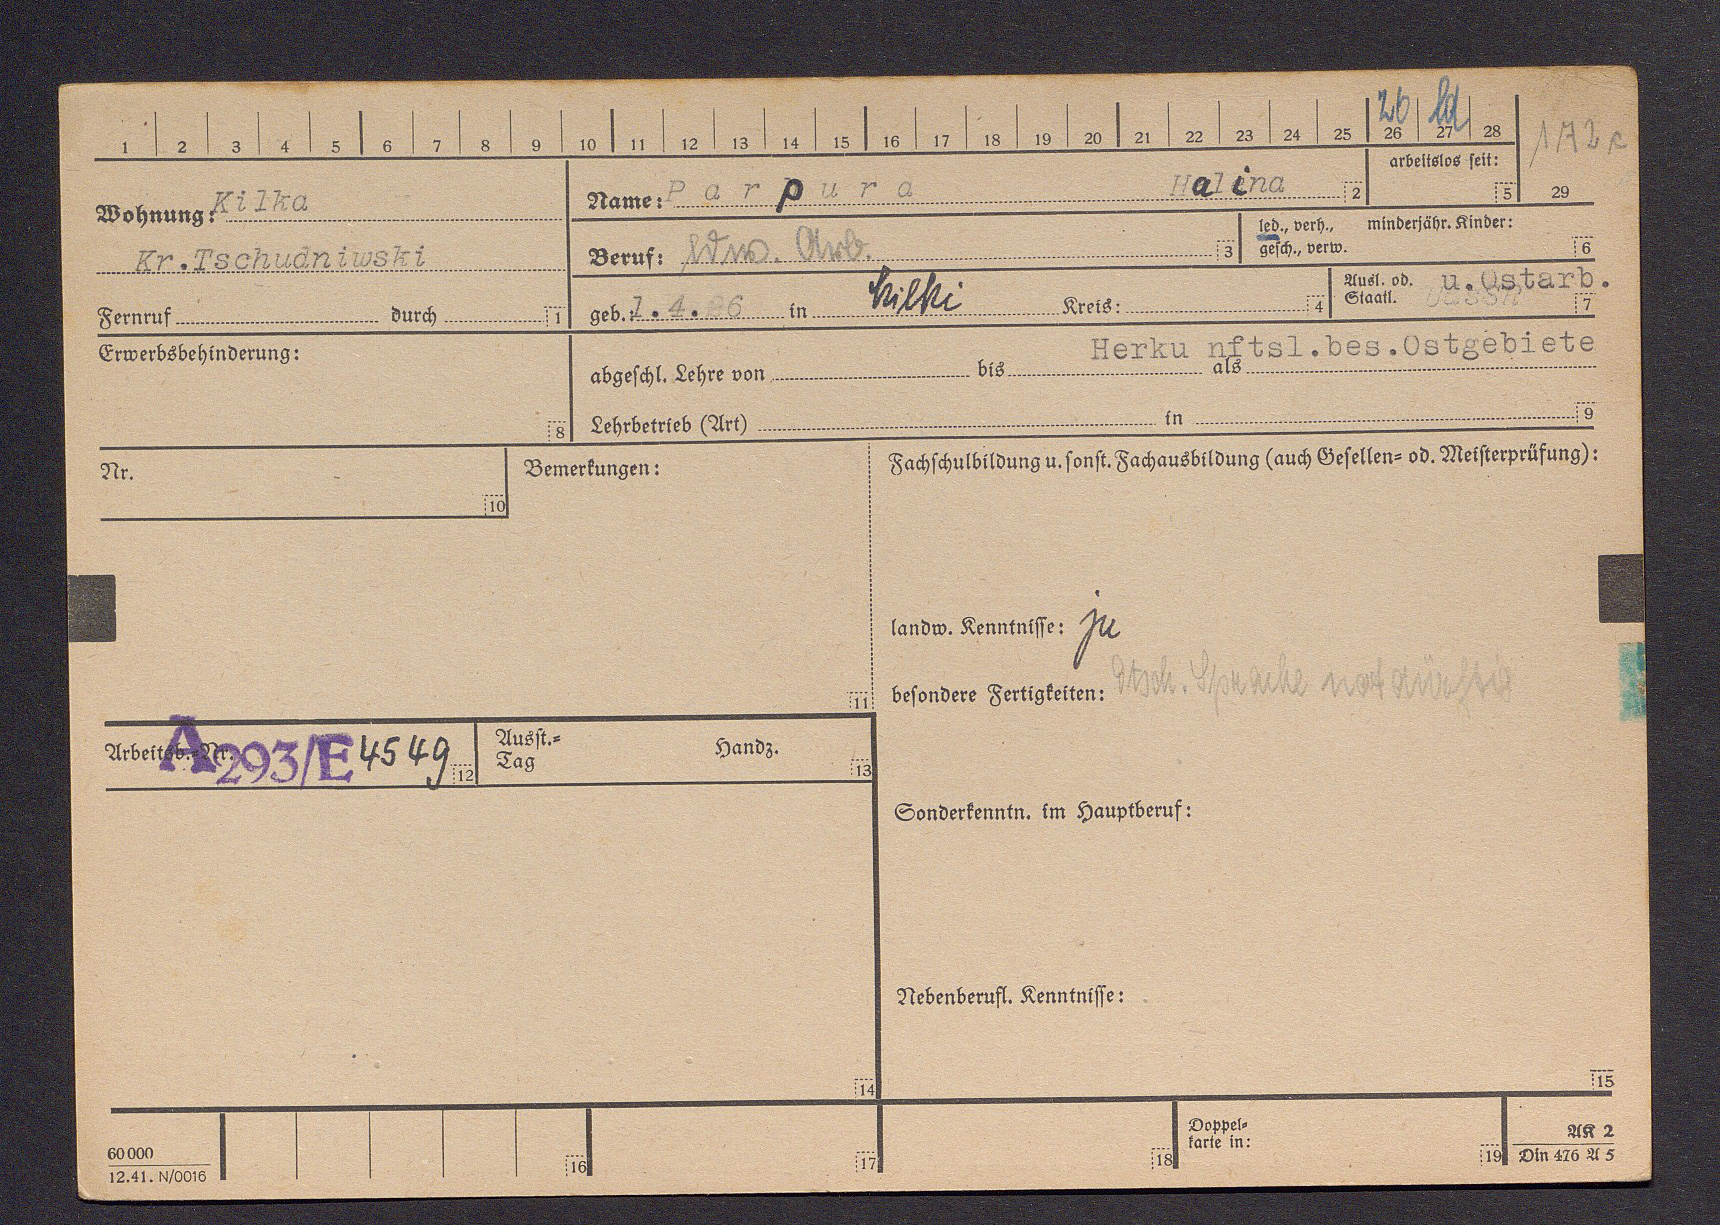 1 2 3 4 5 6 7 8 9 10 11 12 13 14 15 16 17 18 19 20 21 22 23 24 25 26 27 28 29
26 ld
172 c
arbeitslos seit: 5
Wohnung: Kilka
Kr.Tschudniwski
Fernruf durch 1
Name: Parpura Halina 2
Beruf: ldw. Arb. 3
led., verh., minderjähr. Kinder:
gesch., verw. 6
geb.: 1.4.26 in Kilki Kreis: 4
Ausl. od. u.Ostarb.
Staatl. 7
Erwerbsbehinderung: 8
Herku nftsl.bes.Ostgebiete
abgeschl. Lehre von bis als
Lehrbetrieb (Art) in 9
Nr. 10
Bemerkungen: 11
Fachschulbildung u. sonst. Fachausbildung (auch Gesellen- od. Meisterprüfung):
landw. Kenntnisse: ja
besondere Fertigkeiten: dtsch. Sprache notdürftig
Arbeitsb.-Nr. A293/E 4549 12
Ausst.-
Tag
Handz. 13
Sonderkenntn. im Hauptberuf:
Nebenberufl. Kenntnisse:
14
15
60 000
12.41. N/0016
16
17
18
Doppel-
karte in: 19
AK 2
Din 476 A 5